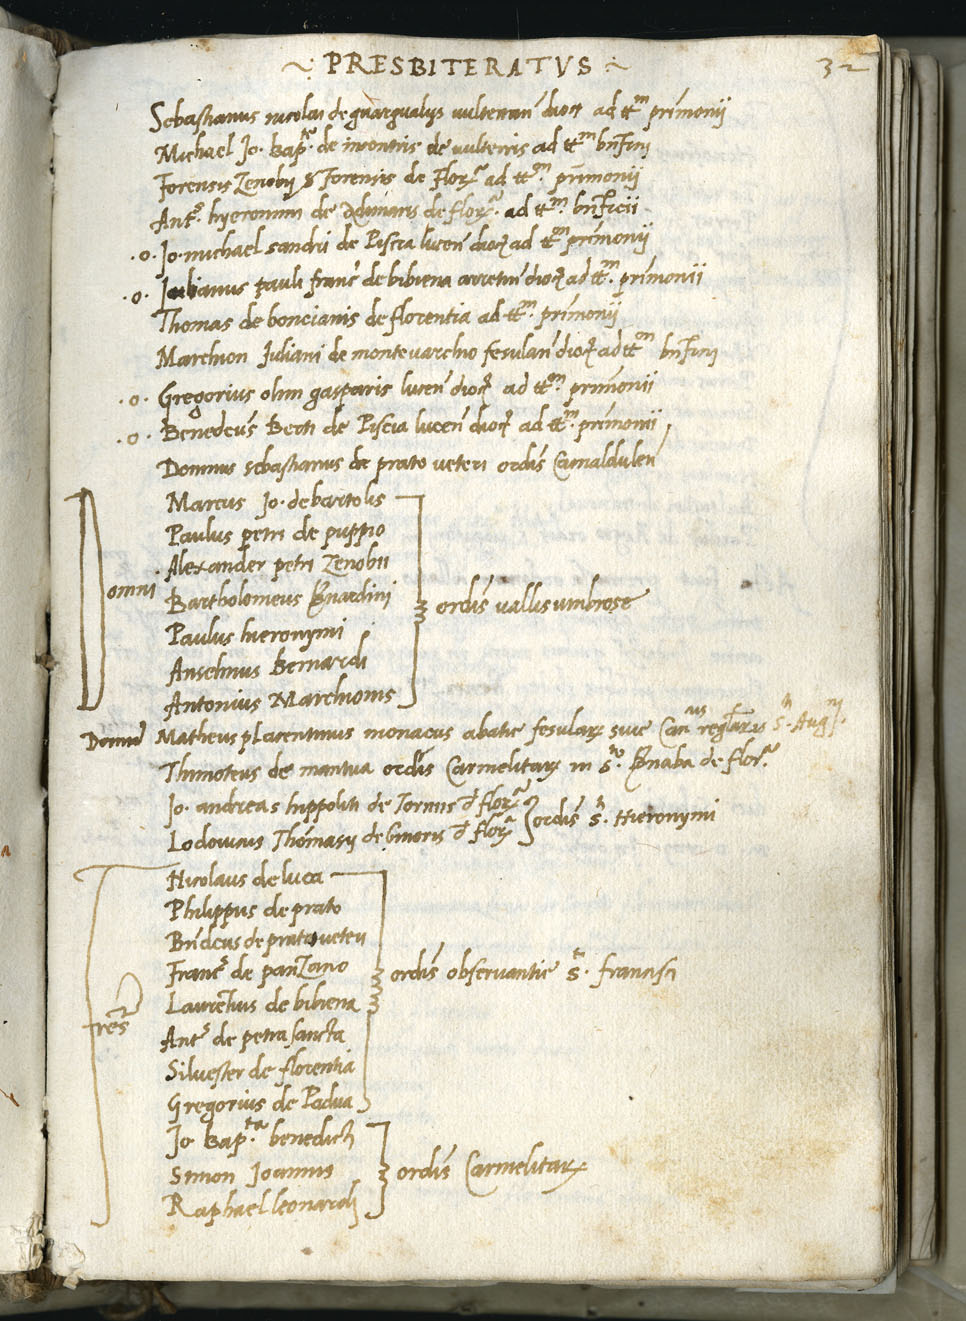 ~: PRESBITERATVS :~
32
Sebastianus nicolai de guargualijs vulterran̄ dioc̄ ad tt̄m prīmonij
Michael Jo. Bapte. de incontris de vulterris ad tt̄m bn̄ficij
Forensis Zenobij Forensis de Flora ad tt̄m. prīmonij
Ants. hyeronimi de de flora. ad tt̄m. bn̄ficii
.o. Jo. michael sandri de Piscia lucen̄ dioc̄ ad tt̄m prīmonij
.o. Julianus pauli franc̄ de bibiena arretin̄ dioc̄ ad tt̄m. prīmonii
Thomas de boncianis de florentia ad tt̄m. prīmonij
Marchion Juliani de montevarchio fesulan̄ dioc̄ ad tt̄m bn̄ficij
.o. Gregorius olim gasparis lucen̄ dioc̄ ad tt̄m. prīmonii
.o. Benedcūs Berti de Piscia lucen̄ dioc̄ ad tt̄m. prīmonii
Domnus sebastianus de prato veteri ordīs Camaldulen̄
Marcus Jo. de bartolis
Paulus petri de puppio
Alexander petri Zenobii
Domni Bartholomeus Bn̄ardini ordīs vallis umbrose
Paulus hieronymi
Anselmus Bernardi
Antonius Marchionis
Domn̄ Matheus placentinus monacus abatie fesulaꝝ sive Cannus reglāriꝝ Sti. Augni.
Thimoteus de mantua ordīs Carmelitaꝝ in Sto. Bn̄aba de flora.
Jo. andreas hippoliti de Tornis d̄ flora
Lodovicus Thomasij de Ginoris d̄ flora ordīs S̄. Hieronymi
Nicolaus de luca
Philippus de prato
Bn̄dcūs de prato veteri
Francs de panzano ordīs observantie S̄. francisci
Laurētius de bibiena
fres̄
Ants de petra sancta
Silvester de florentia
Gregorius de Padua
Jo Bapta. benedicti
Simon Joannis ordīs Carmelitaꝝ
Raphael leonardi